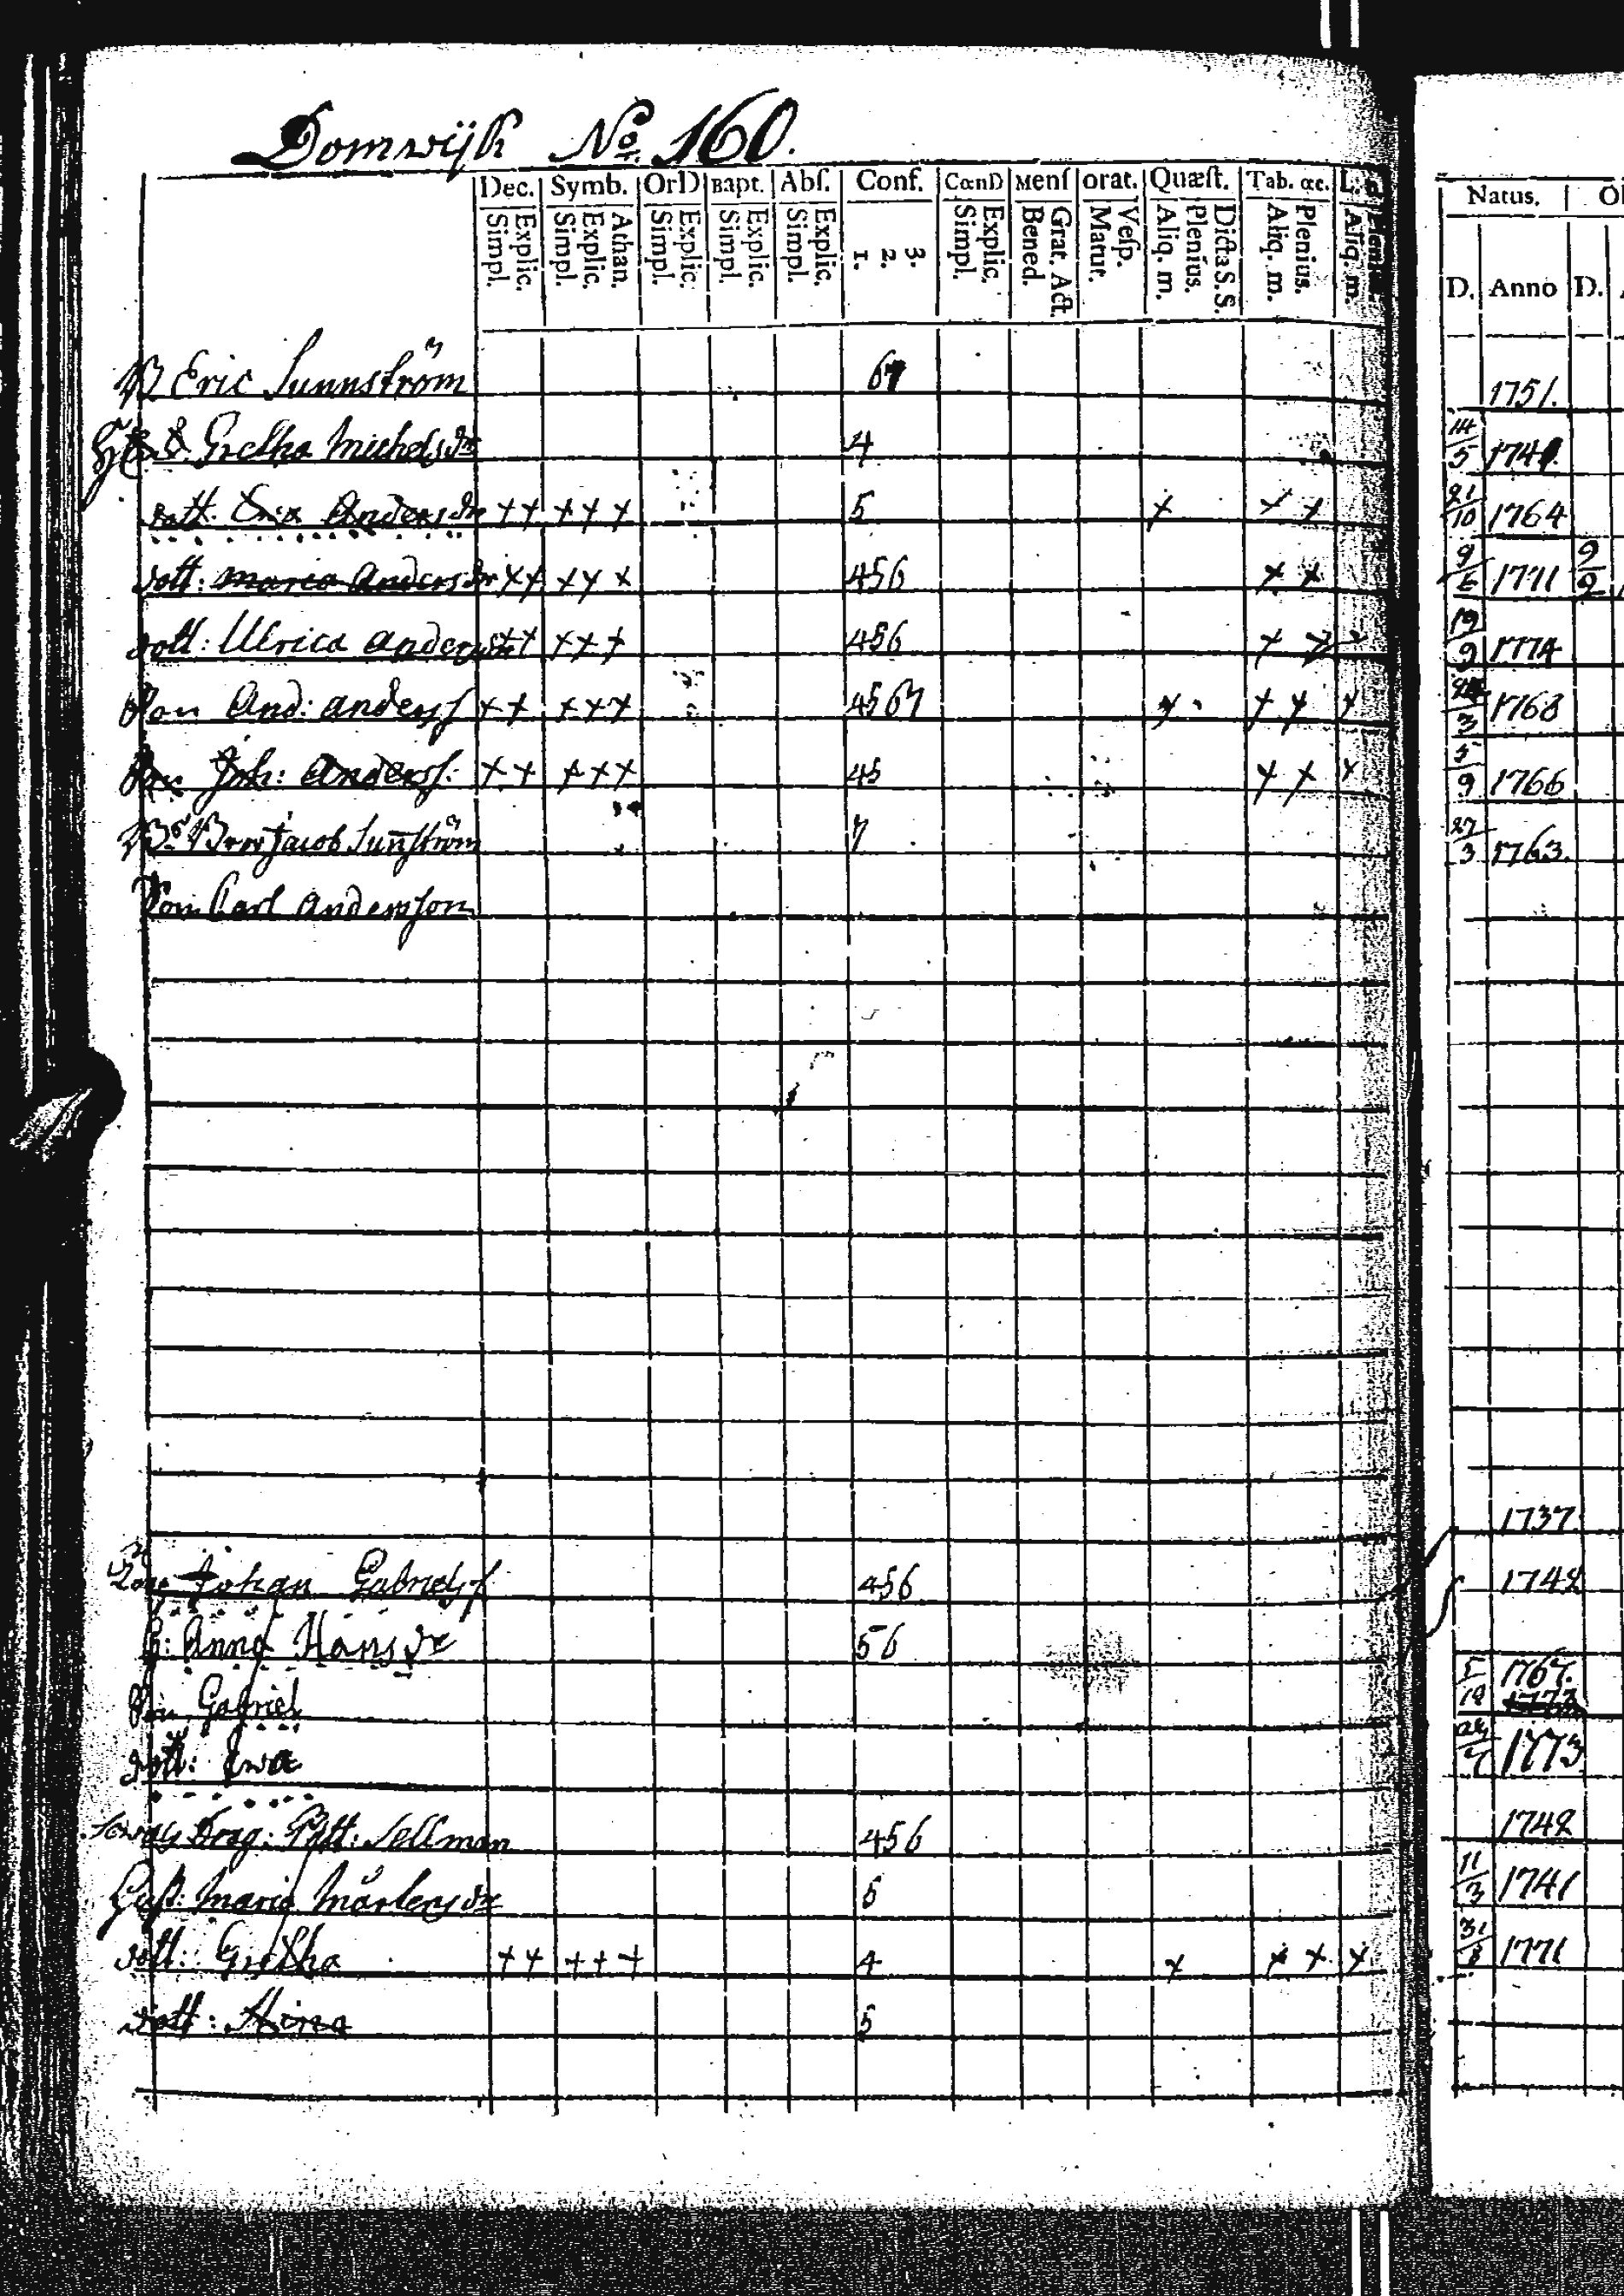 Domwijk No. 160.
Dec. Symb. OrD Bapt. Abſ. Conf. CœnD Menſ orat. Quæſt. Tab. œc. Natus.
Simpl. Explic. Simpl. Explic. Athan. Simpl. Explic. Simpl. Explic. Simpl. Explic. 1. 2. 3. Simpl. Explic. Bened. Grat. Act. Matut. Veſp. Aliq. m. Plenius. Dicta S.S. Aliq. m. Plenius. Aliq. m. D. Anno D.
Eric Sunnström 1751.
Gretha Michelsdr 4 14/5
Anders dr ++ +++ 5 + + + 21/10 1764
dott: Maria Andersdr ++ +++ 456 + + 9/6 1771 9/9
dott: Ulrica Andersdr ++ +++ 456 + + + 19/9 1774
Son And: Andersſ ++ +++ 4567 + + + + 1768
Son Joh: Andersſ: ++ +++ 45 + + + 5/9 1766
Jacob Sunström 7 27/3 1763.
Son Carl Andersson
1737.
Johan Gabrielsſ 456 1742
h: Anna Hansdr 56
Son Gabriel 1767. 1773
dott: Ewa 1773
Drag: Sellman 456 1742
Maria Mårtensdr 5 11/3 1741
dott: Gretha ++ +++ 4 + + + + 1771
dott: Stina 5